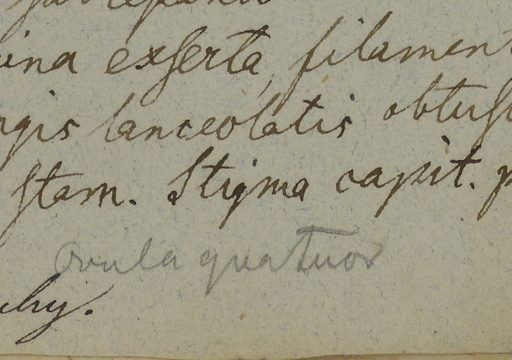 ina exserta, filament
gis lanceolatis obtus
Stam. Stigma capit. p
Ovula quatuor
chy.